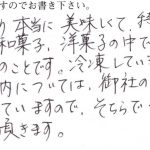 すのでお書き下さい。
り本当に美味しくて、特
和菓子、洋菓子の中で
のことです。冷凍していま
内については、御社の
ていますので、そちらで
頂きます。